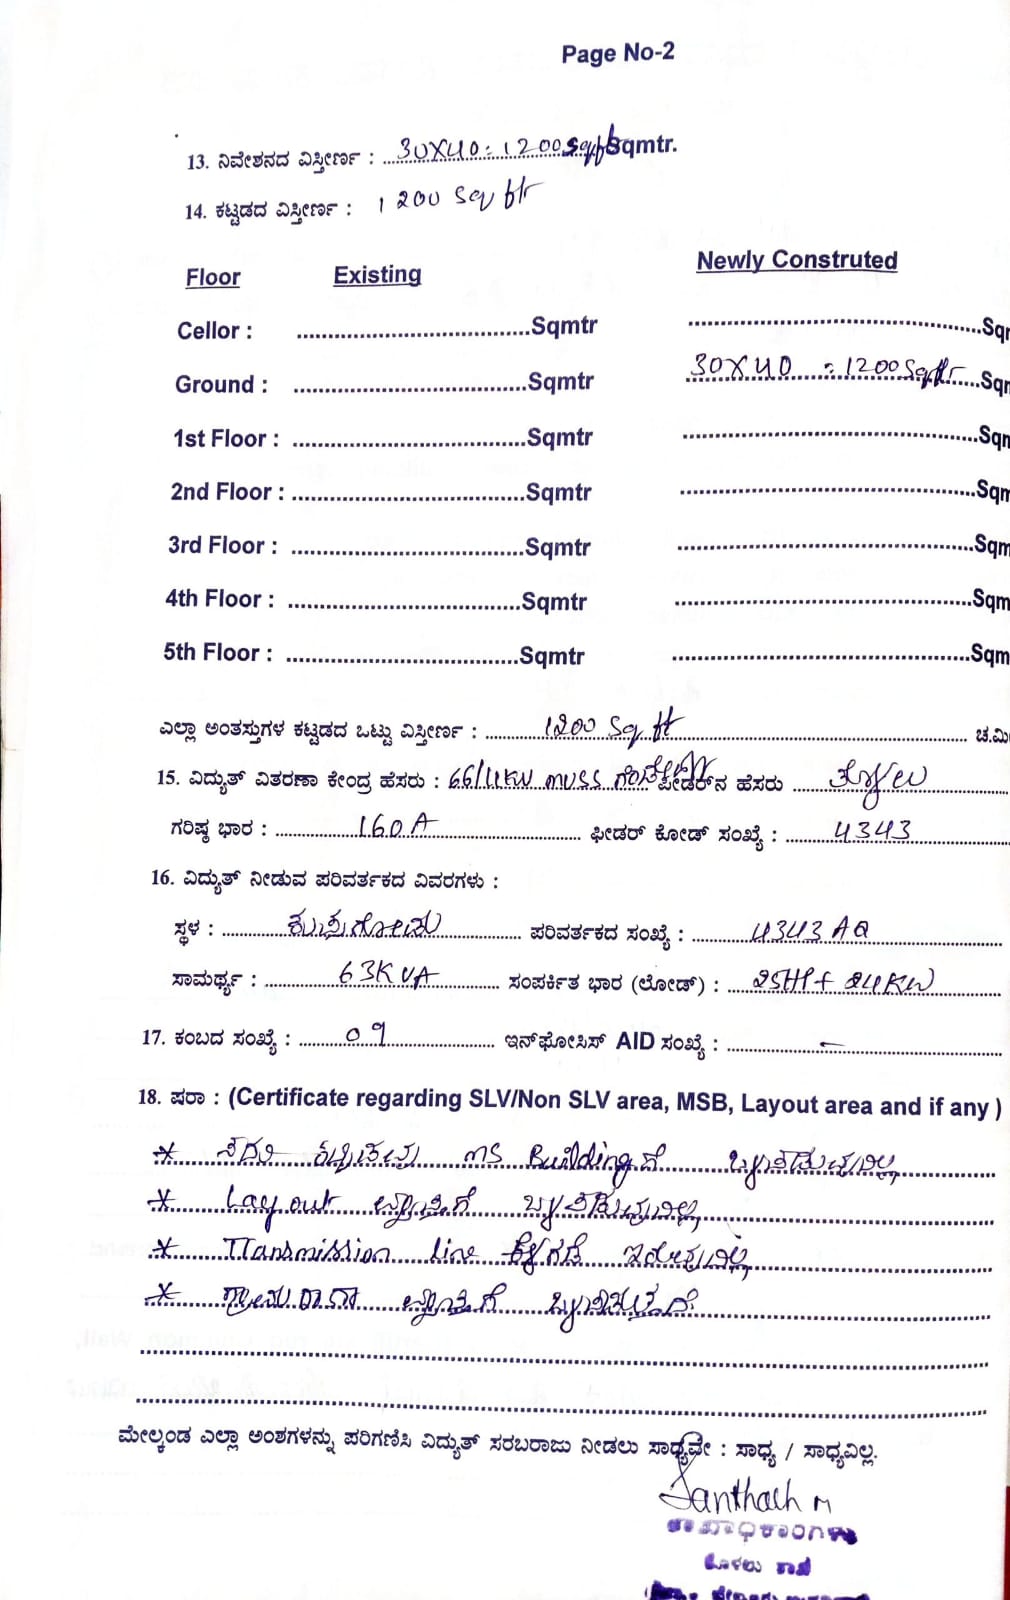 Page No-2
13. ನಿವೇಶನದ ವಿಸ್ತೀರ್ಣ : 30X40=1200 Sqft Sqmtr.
14. ಕಟ್ಟಡದ ವಿಸ್ತೀರ್ಣ : 1200 Sq ft
Floor Existing Newly Construted
Cellor : ........Sqmtr ........Sqr
Ground : ........Sqmtr 30X40 = 1200 Sqft ........Sqr
1st Floor : ........Sqmtr ........Sqn
2nd Floor : ........Sqmtr ........Sqm
3rd Floor : ........Sqmtr ........Sqm
4th Floor : ........Sqmtr ........Sqm
5th Floor : ........Sqmtr ........Sqm
ಎಲ್ಲಾ ಅಂತಸ್ತುಗಳ ಕಟ್ಟಡದ ಒಟ್ಟು ವಿಸ್ತೀರ್ಣ : 1200 Sq ft ಚ.ಮಿ
15. ವಿದ್ಯುತ್ ವಿತರಣಾ ಕೇಂದ್ರ ಹೆಸರು : 66/11KW MUSS ಫೀಡರ್‌ನ ಹೆಸರು
ಗರಿಷ್ಠ ಭಾರ : 160A ಫೀಡರ್ ಕೋಡ್ ಸಂಖ್ಯೆ : 4343
16. ವಿದ್ಯುತ್ ನೀಡುವ ಪರಿವರ್ತಕದ ವಿವರಗಳು :
ಸ್ಥಳ : ಪರಿವರ್ತಕದ ಸಂಖ್ಯೆ : 4343 AQ
ಸಾಮರ್ಥ್ಯ : 63KVA ಸಂಪರ್ಕಿತ ಭಾರ (ಲೋಡ್) : 25HP+ 24KW
17. ಕಂಬದ ಸಂಖ್ಯೆ : 09 ಇನ್‌ಫೋಸಿಸ್ AID ಸಂಖ್ಯೆ : –
18. ಷರಾ : (Certificate regarding SLV/Non SLV area, MSB, Layout area and if any )
* ಸದರಿ ಕಟ್ಟಡವು MS Buildingಗೆ ಒಳಪಡುವುದಿಲ್ಲ
* Layout ವ್ಯಾಪ್ತಿಗೆ ಒಳಪಡುವುದಿಲ್ಲ
* Transmission line ಕೆಳಗಡೆ ಇರುವುದಿಲ್ಲ
* ವ್ಯಾಪ್ತಿಗೆ
ಮೇಲ್ಕಂಡ ಎಲ್ಲಾ ಅಂಶಗಳನ್ನು ಪರಿಗಣಿಸಿ ವಿದ್ಯುತ್ ಸರಬರಾಜು ನೀಡಲು ಸಾಧ್ಯವೇ : ಸಾಧ್ಯ / ಸಾಧ್ಯವಿಲ್ಲ.